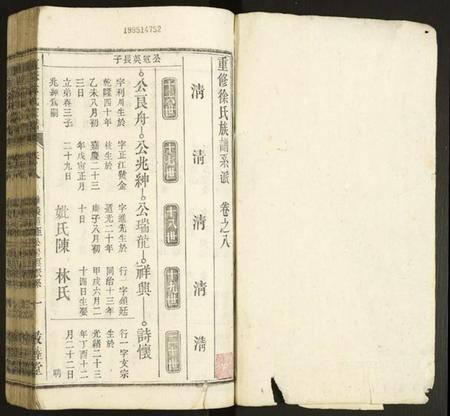 199514752
重修徐氏族譜系派 卷之八
清 清 清 清 清
十六世 十七世 十八世 十九世 二十世
公冠英長子
公良舟
公兆紳
公瑞龍
祥興
詩懷
字利川生於
乾隆四十年
乙未八月初
三日
立弟春三子
兆紳為嗣
字正江號金
枝生於
嘉慶二十三
年戊寅正月
二十九日
字進先生於
道光二十年
庚子八月初
十日
妣氏陳 林氏
行一字鎮廷
同治十三年
甲戌六月二
十四日生娶
行一字文宗
生於
光緒二十三
年丁酉十二
月二十二日
聘
敦睦堂